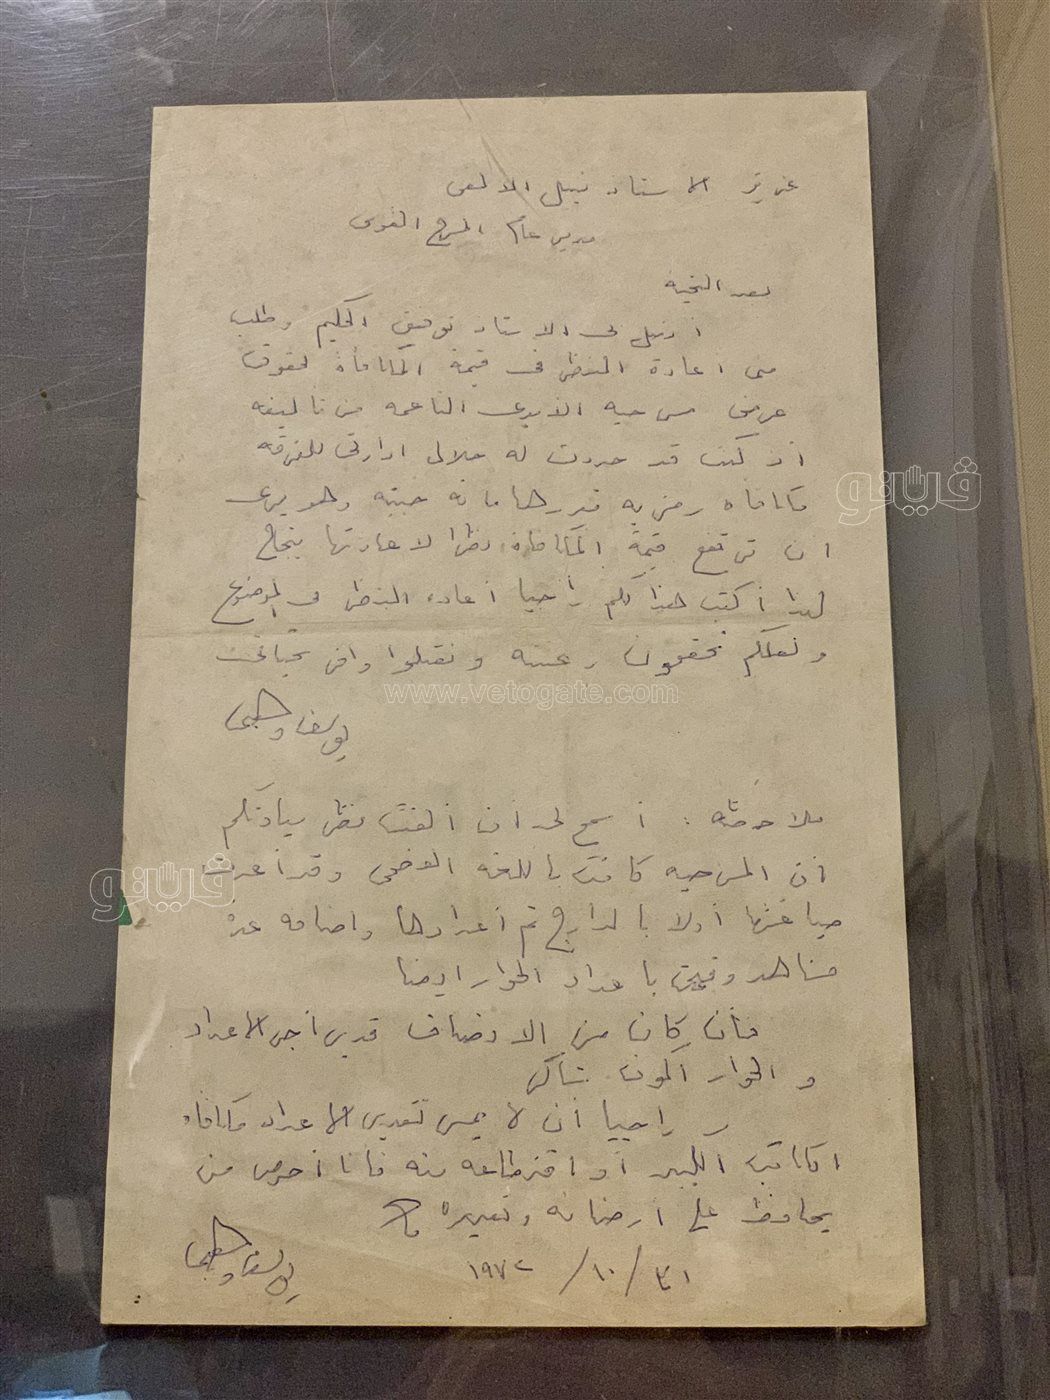 عزيزى الاستاذ نبيل الالفى
مدير عام المسرح القومى
بعد التحيه
أرسل لى الاستاذ توفيق الحكيم وطلب
منى اعادة النظر فى قيمة المكافأة لحقوق
عرض مسرحيه الايدى الناعمه من تأليفه
اذ كنت قد حددت له خلال ادارتى للفرقه
مكافاه رمزيه قدرها مائة جنيه وهو يرى
ان ترتفع قيمة المكافاة نظرا لاعادتها بنجاح
لهذا أكتب هذا لكم راجيا اعاده النظر فى الموضوع
ولعلكم تحققون رغبته وتقبلوا وافر تحياتى
يوسف وهبى
ملاحظه : اسمح لى أن ألفت نظر سيادتكم
ان المسرحيه كانت باللغه الفصحى وقد أعدت
صياغتها أولا بالدارج ثم أعدادها واضافه عدة
مشاهد وقمت باعداد الحوار ايضا
فأن كان من الانصاف تقدير أجر الاعداد
و الحوار أكون شاكرا
راجيا أن لا يمس تقدير الاعداد مكافاه
الكاتب الكبير أو اقتطاعه منه فانا أحرص من
يحافظ على ارضائه وتقديره
يوسف وهبى
٣١ / ١٠ / ١٩٧٢
فيتو
www.vetogate.com
فيتو